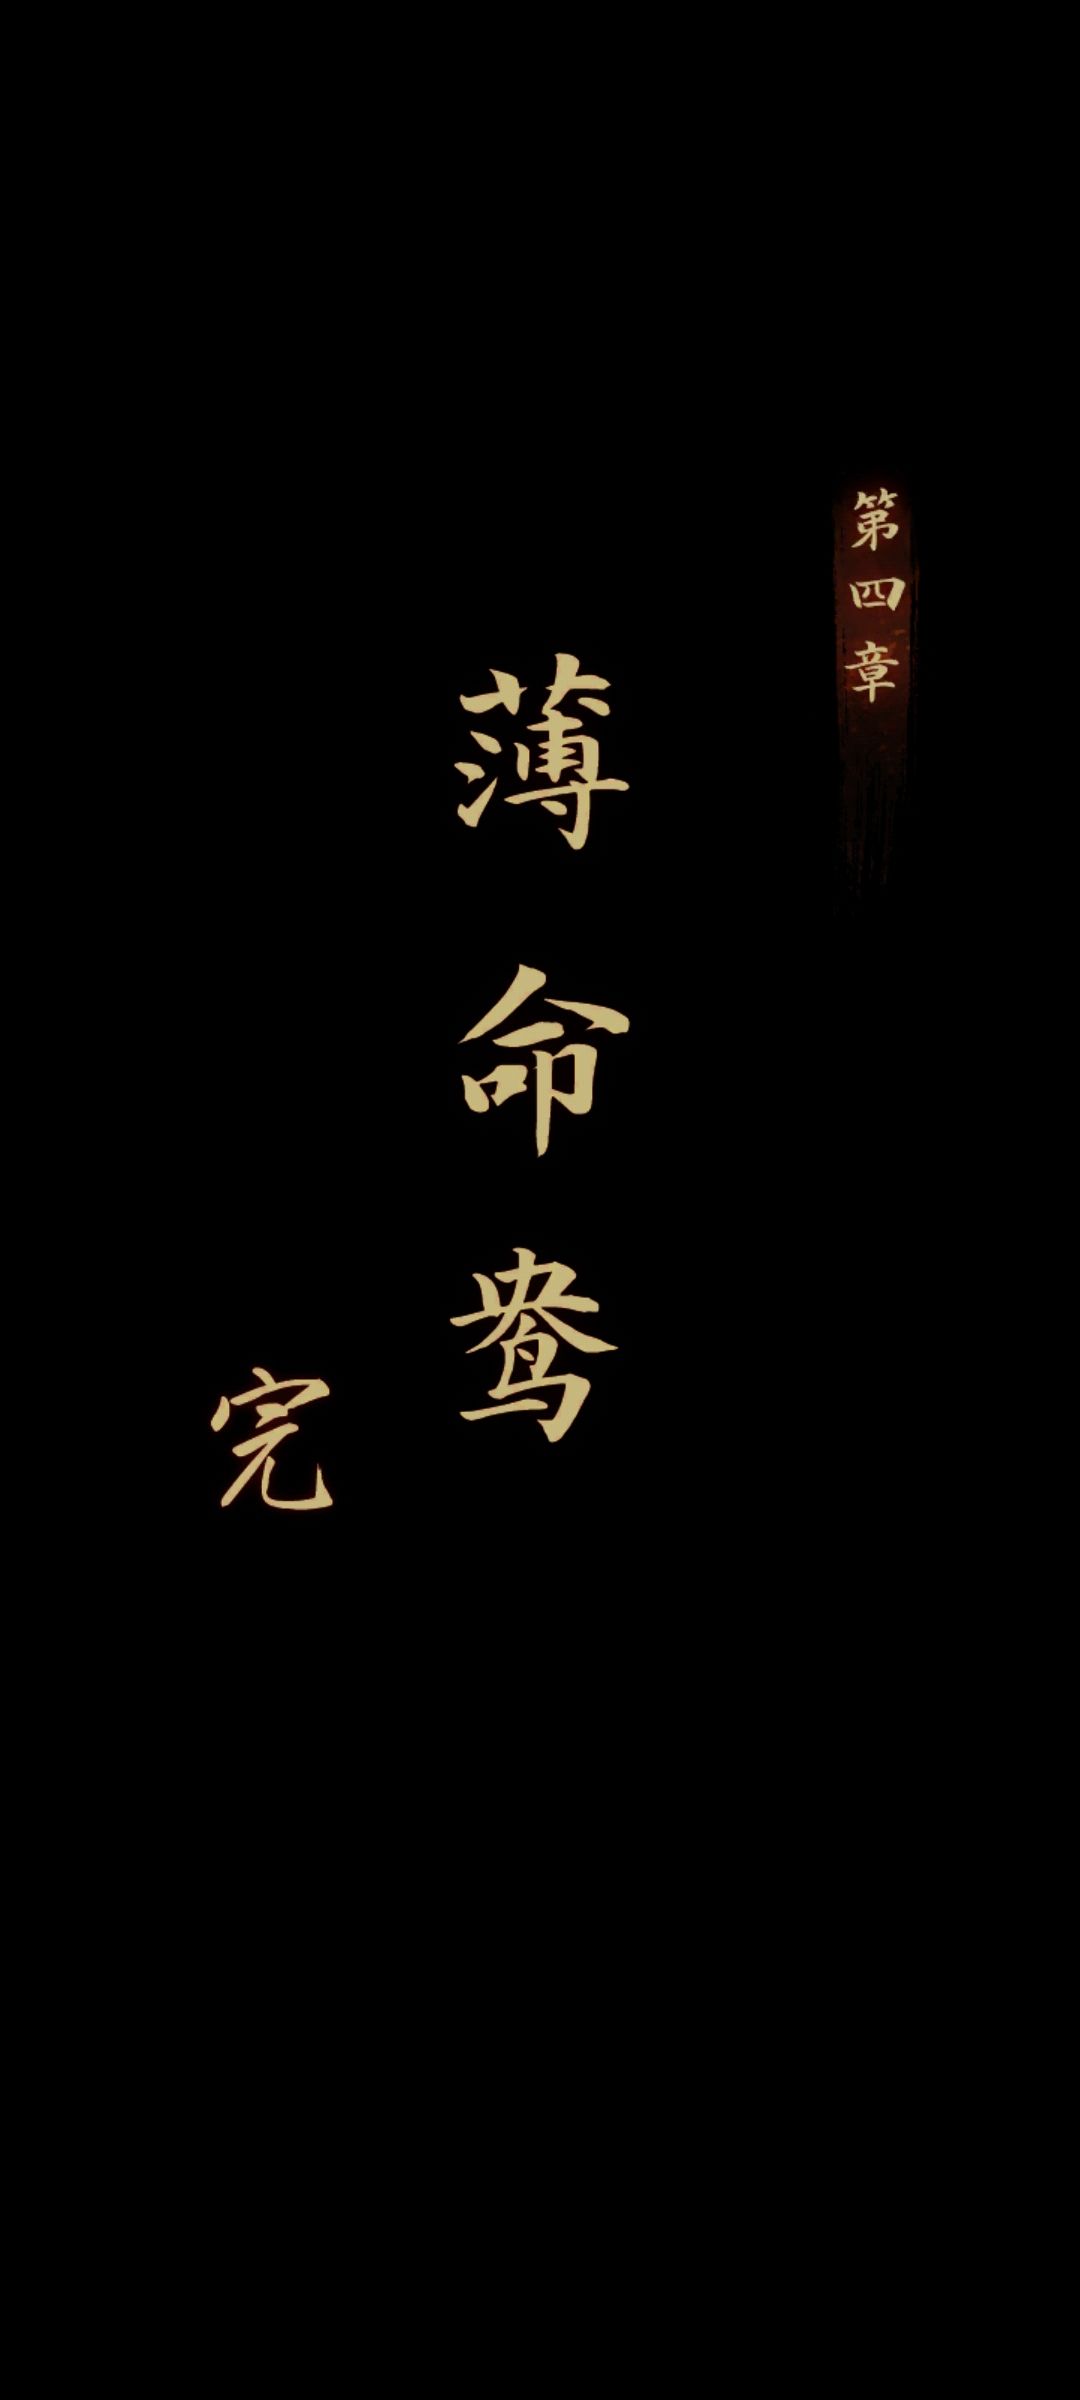 第四章
薄命鸯
完